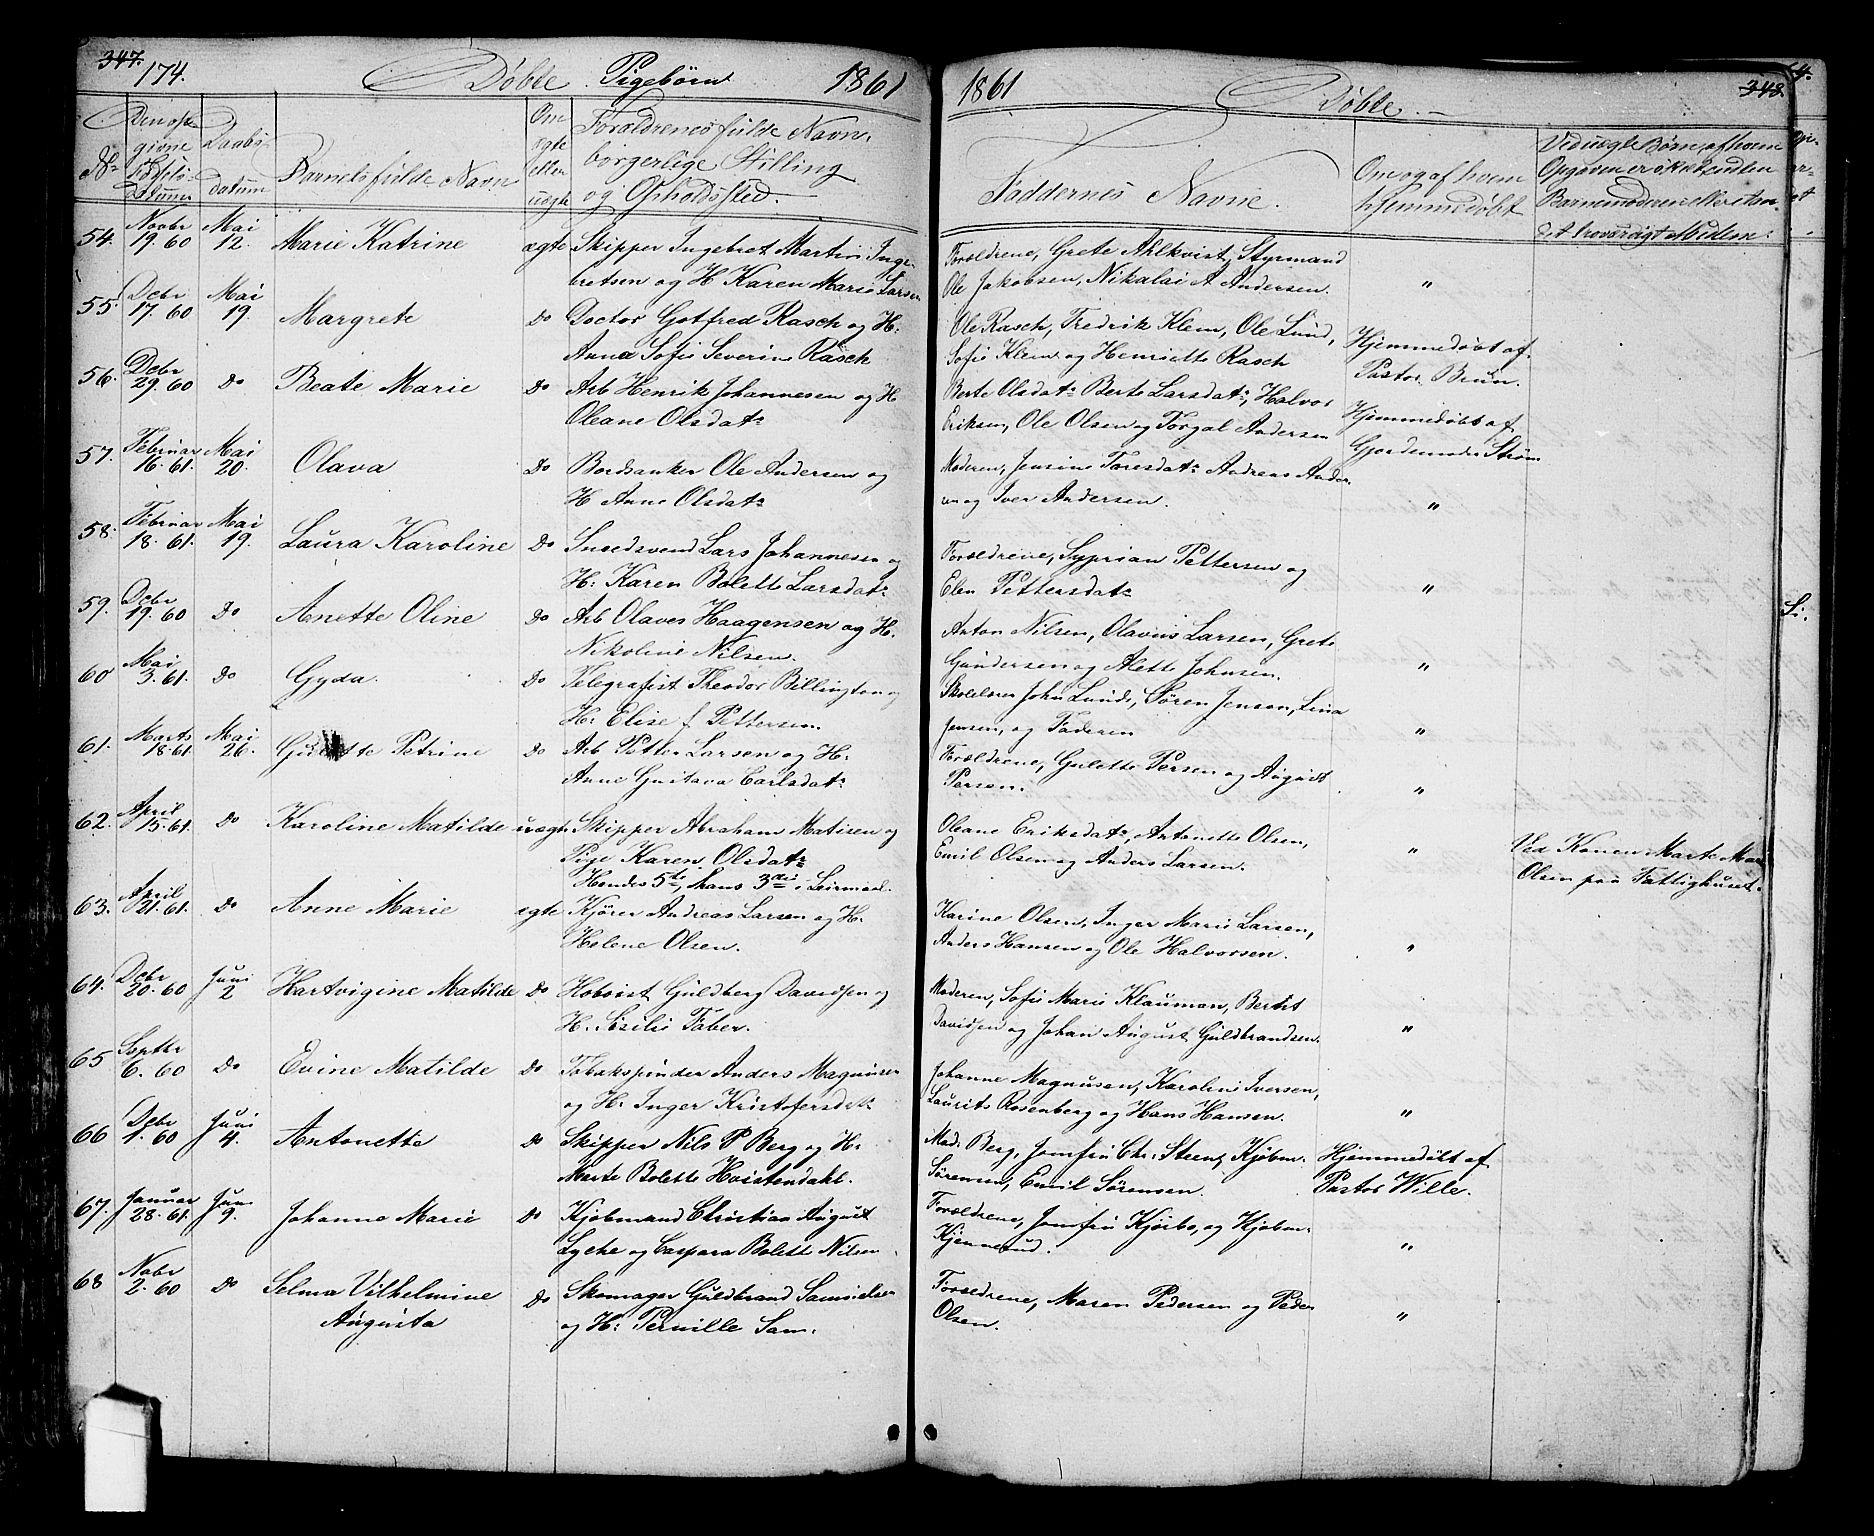 347.
174.
Döbte Pigebörn 1861
No
Den opgivne Födselsdatum
Daabsdatum
Barnets fulde Navn
Om ægte eller uægte
Forældrenes fulde Navn, borgerlige Stilling og Opholdssted.
54. Novbr 19. 60 Mai 12. Marie Katrine ægte Skipper Ingebret Martin Inge-
bretsen og H Karen Marie Larsen
55. Decbr 17 60 Mai 19. Margrete Do Doctor Gotfred Rasch og H.
Anna Sofie Severine Rasch
56. Dcbr 29. 60 Do Beate Marie Do Arb Henrik Johannesen og H
Oleane Olsdatr
57. Februar 16. 61. Mai 20. Olava Do Bordsanker Ole Andersen og
H Anne Olsdatr
58. Februar 18. 61. Mai 19. Laura Karoline Do Snedsvend Lars Johannesen og
H: Karen Bolette Larsdatr
59. Dcbr 19. 60 Do Anette Oline Do Arb Olaves Haagensen og H.
Nikoline Nilsen.
60 Mai 3. 61. Do Gyda. Do Telegrafist Theodor Billington og
H: Elise f Pettersen.
61. Marts 18. 61. Mai 26. Petrine Do Arb Petter Larsen og H.
Anne Gustava Carlsdatr
62. April 15. 61. Do Karoline Matilde uægte Skipper Abraham Matisen og
Pige Karen Olsdatr
Hendes 5te, hans 3die i Leirmaal.
63. April 21. 61. Do Anne Marie ægte Kjörer Andreas Larsen og H.
Helene Olsen.
64. Dcbr 20. 60 Juni 2 Hartvigine Matilde Do Hoboist Guldberg Davidsen og
H. Sisilie Faber.
65 Septbr 6. 60 Do Evine Matilde Do Tobakspinder Anders Magnusen
og H: Inger Kristofersdatr
66 Dcbr 1. 60 Juni 4. Antonette Do Skipper Nils P Berg og H.
Marte Bolette Hvistendahl.
67. Januar 28. 61. Juni 9. Johanne Marie Do Kjöbmand Christian August
Lyche og Caspara Bolette Nilsen.
68 Nobr 2. 60 Do Selma Vilhelmine Do Skomager Guldbrand Samuelsen
Augusta og H: Pernille Sam:
1861 Döbte.
348.
Faddernes Navne.
Om og af hvem hjemmedöbt
Ved uægte Börn, af hvem
Opgaven er sket, enten
Barnemoderen eller et an-
det troværdigt Vidne.
Forældrene, Grete Ahlkvist, Styrmand
Ole Jakobsen, Nikalai A Andersen. "
Ole Rasch, Fredrik Klem, Ole Lund,
Sofie Klem og Henriette Rasch
Hjemmedöbt af
Pastor Brun.
Berte Olsdatr Berte Larsdatr, Halvor
Eriksen, Ole Olsen og Torgal Andersen
Hjemmedöbt af
Gjordemoder Ström
Moderen, Jensine Taresdatr Andreas Ander-
sen og Iver Andersen. "
Forældrene, Syprian Pettersen og
Elen Pettersdatr "
Anton Nilsen, Olavus Larsen, Grete
Gundersen og Alette Johnsen. "
Skolelærer John Lunde, Sören Jensen, Lina
Jensen, og Faderen "
Forældrene, Gulette Persen og August
Persen. "
Oleane Eriksdatr, Antonette Olsen,
Emil Olsen og Anders Larsen. "
Ved Konen Marte Marie
Olsen paa Fattighuset.
Karine Olsen, Inger Marie Larsen,
Anders Hansen og Ole Halvorsen. "
Moderen, Sofie Marie Klauman, Bertit
Davidsen og Johan August Guldbrandsen. "
Johanne Magnusen, Karoline Iversen,
Laurits Rosenberg og Hans Hansen. "
Mad. Berg, Jomfru Chr: Steen, Kjöbm.
Sörensen, Emil Sörensen.
Hjemmedöbt af
Pastor Wille.
Forældrene, Jomfru Kjörbo, og Kjöbm.
Kjennerud. "
Forældrene, Maren Pedersen og Peder
Olsen. "